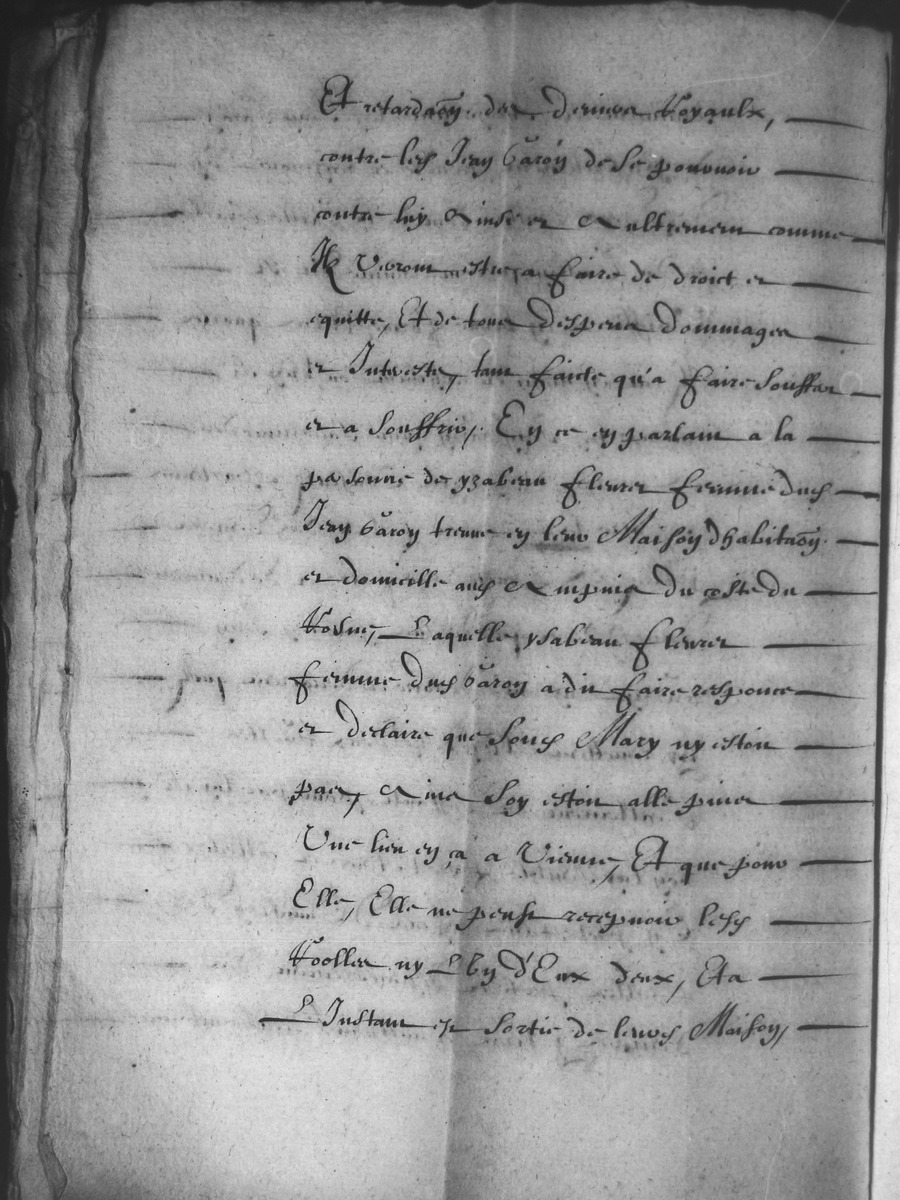 Et retardaōn des deniers Royaulx,
contre led Jean Baron de se pourvoir
contre luy Ainsi et Aultrement comme
Ilz verront estre a faire de droict et
equitte, Et de tous despens dommages
et Interests, tant faicts qu'a faire souffer
et a souffrir, En ce en parlant a la
personne de yzabeau fleuret femme dud
Jean Baron treuve en leur Maison dhabitaōn
et domicille aud Ampuis du costé du
Rosne, Laquelle ysabeau fleuret
femme dud Baron a dit faire responce
et declaire que sond Mary ny estoit
pas, Ains soy estoit allé puis
Une lieu en ça a Vienne, Et que pour
Elle, Elle ne peust recepvoir lesd
Roolles ny L'Un d'Eux deux, Et a
L'Instant est sortie de leurd Maison,